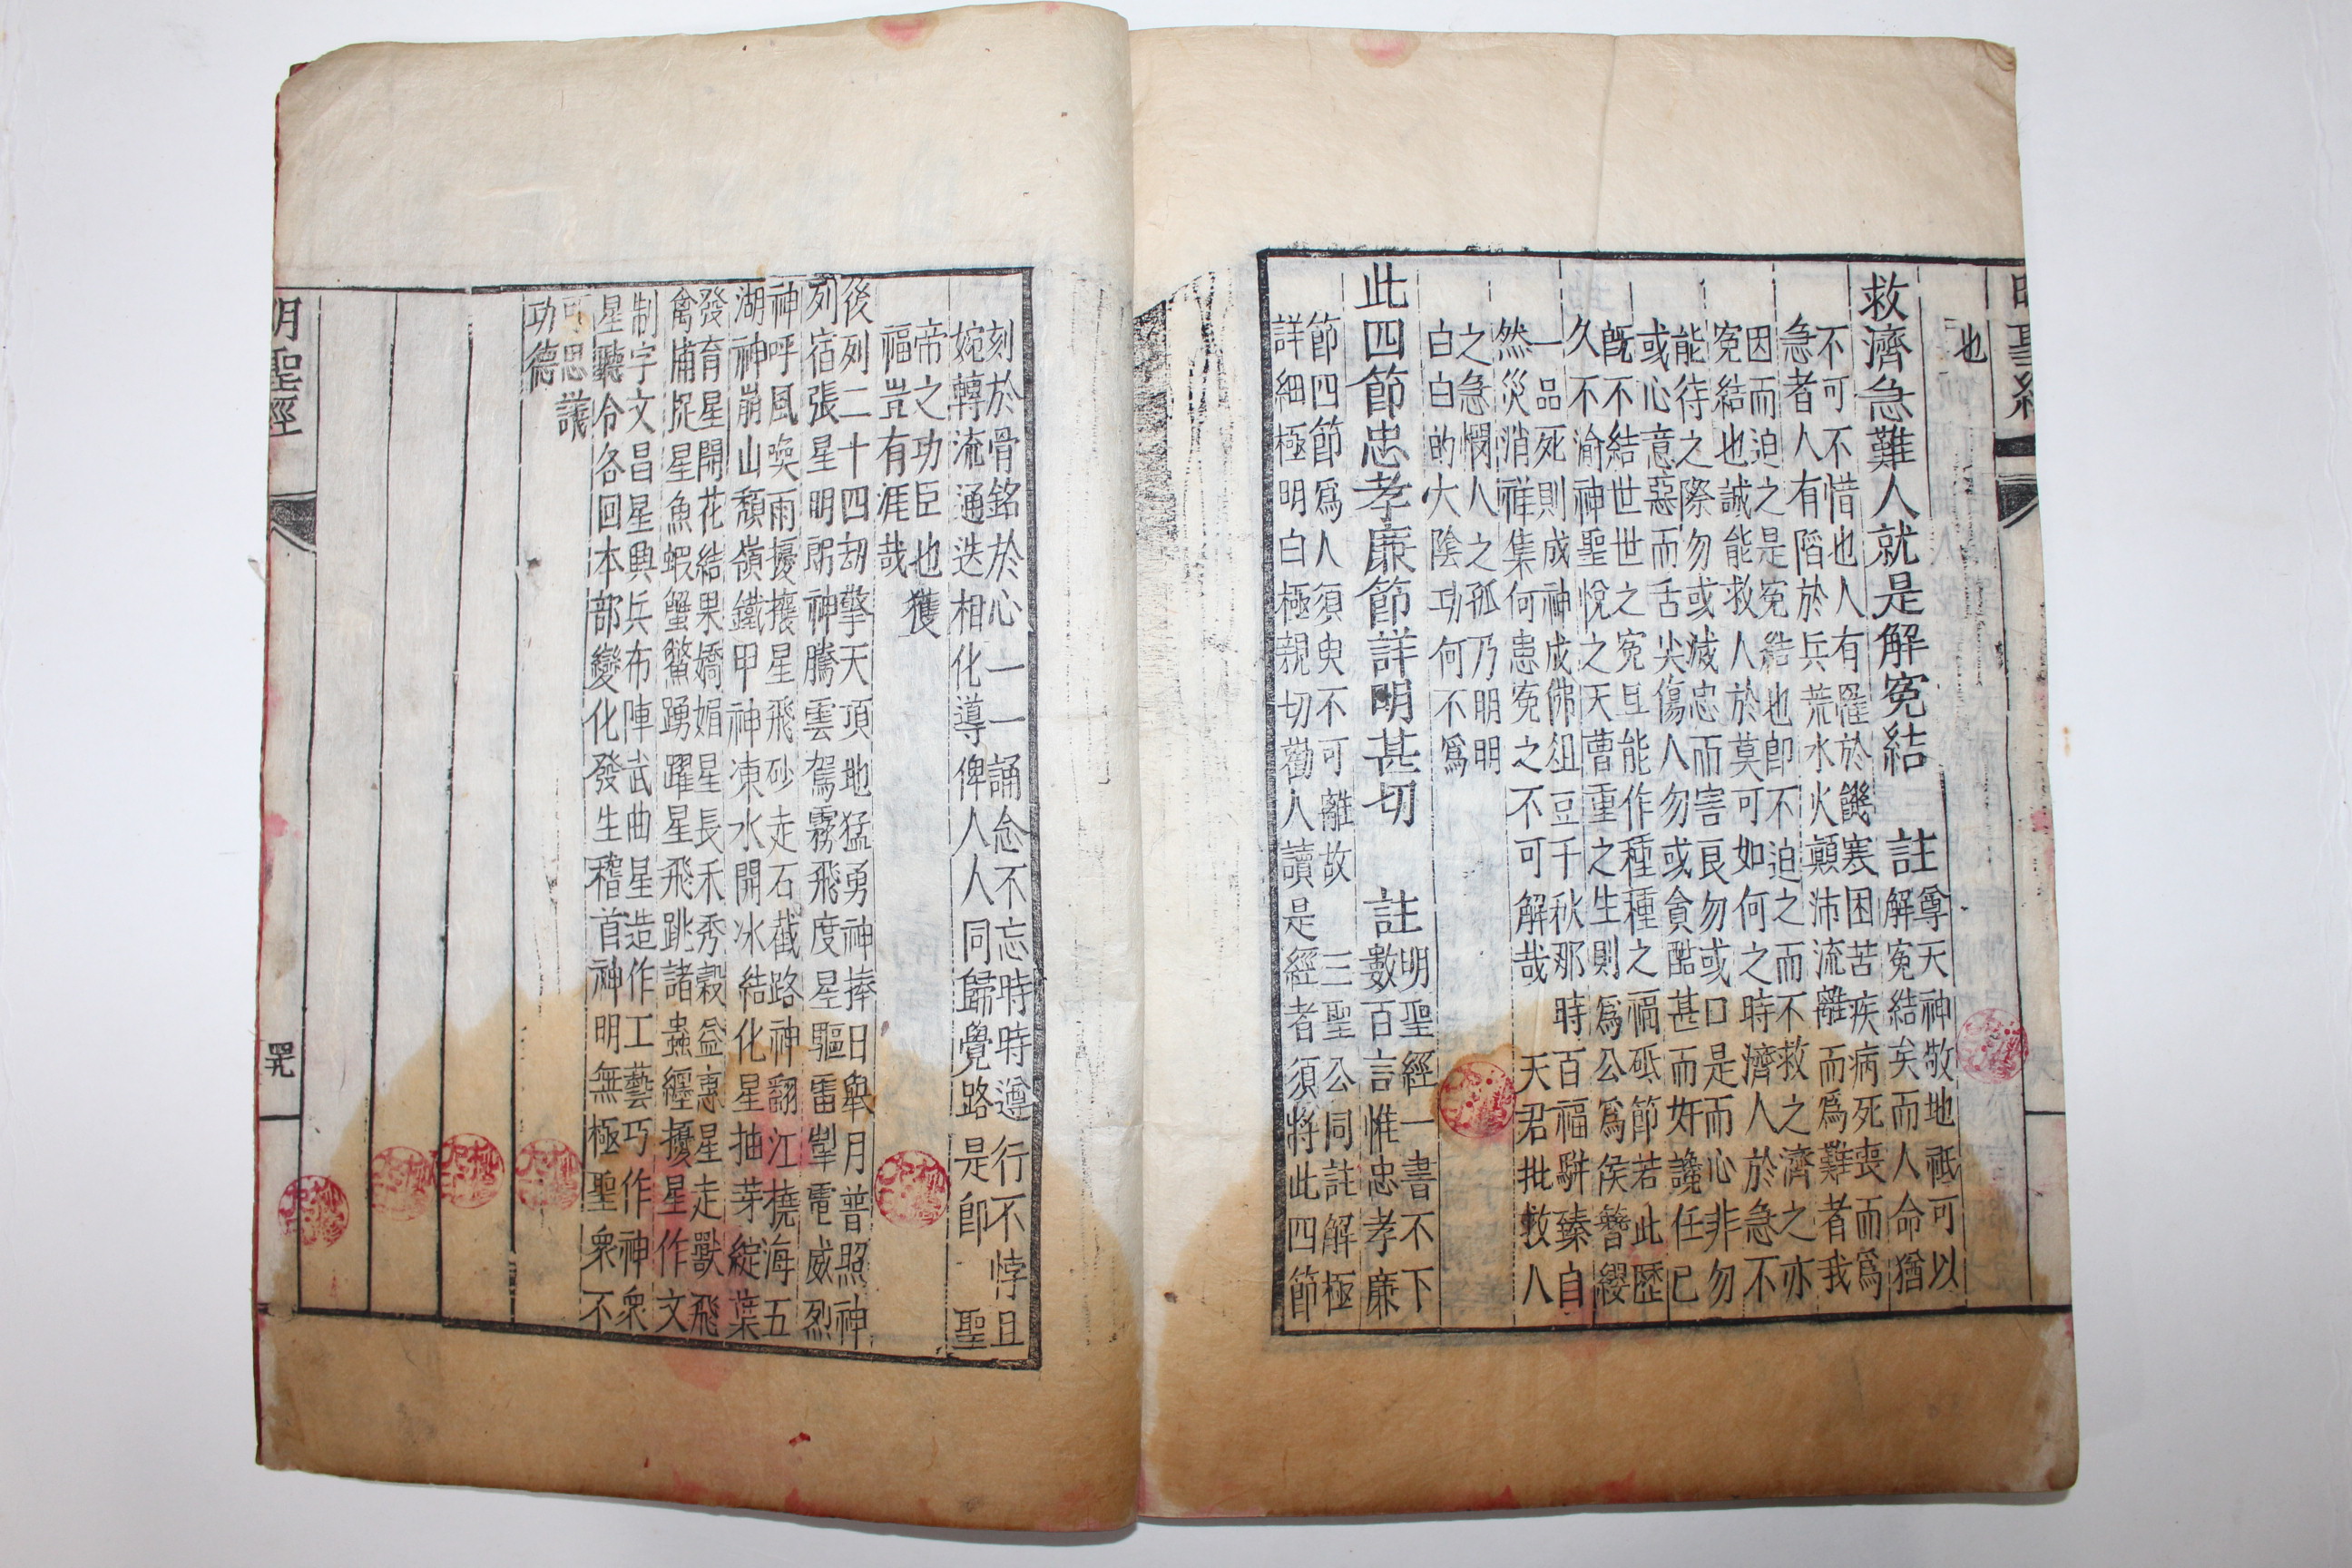 明聖經
也
救濟急難人就是解冤結 註
尊天神敬地祗可以
解冤結矣而人命猶
不可不惜也人有罹於饑寒困苦疾病死喪而爲
急者人有陷於兵荒水火顛沛流離而爲難者我
因而迫之是冤結也卽不迫之而不救之濟之亦
冤結也誠能救人於莫可如何之時濟人於急不
能待之際勿或滅忠而害良勿或口是而心非勿
或心意惡而舌尖傷人勿或貪酷甚而奸讒任已
旣不結世世之冤且能作種種之福砥節若此歷
久不渝神聖悅之天曹重之生則爲公爲侯簪纓
一品死則成神成佛俎豆千秋那時百福駢臻自
然災消祥集何患冤之不可解哉 天君批救人
之急憫人之孤乃明明
白白的大陰功何不爲
此四節忠孝廉節詳明甚切 註
明聖經一書不下
數百言惟忠孝廉
節四節爲人須臾不可離故 三聖公同註解極
詳細極明白極親切勸人讀是經者須將此四節
刻於骨銘於心一一誦念不忘時時遵行不悖且
婉轉流通迭相化導俾人人同歸覺路是卽 聖
帝之功臣也獲
福豈有涯哉
後列二十四刼擎天頂地猛勇神捧日舉月普照神
列宿張星明朗神騰雲駕霧飛度星驅雷掣電威烈
神呼風喚雨擾攘星飛砂走石截路神翻江撓海五
湖神崩山頹嶺鐵甲神凍水開冰結化星抽芽綻葉
發育星開花結果嬌娟星長禾秀穀益惠星走獸飛
禽捕捉星魚蝦蟹鱉踴躍星飛跳諸蟲纏擾星作文
制字文昌星興兵布陣武曲星造作工藝巧作神衆
星聽令各回本部變化發生稽首神明無極聖衆不
可思議
功德
明聖經